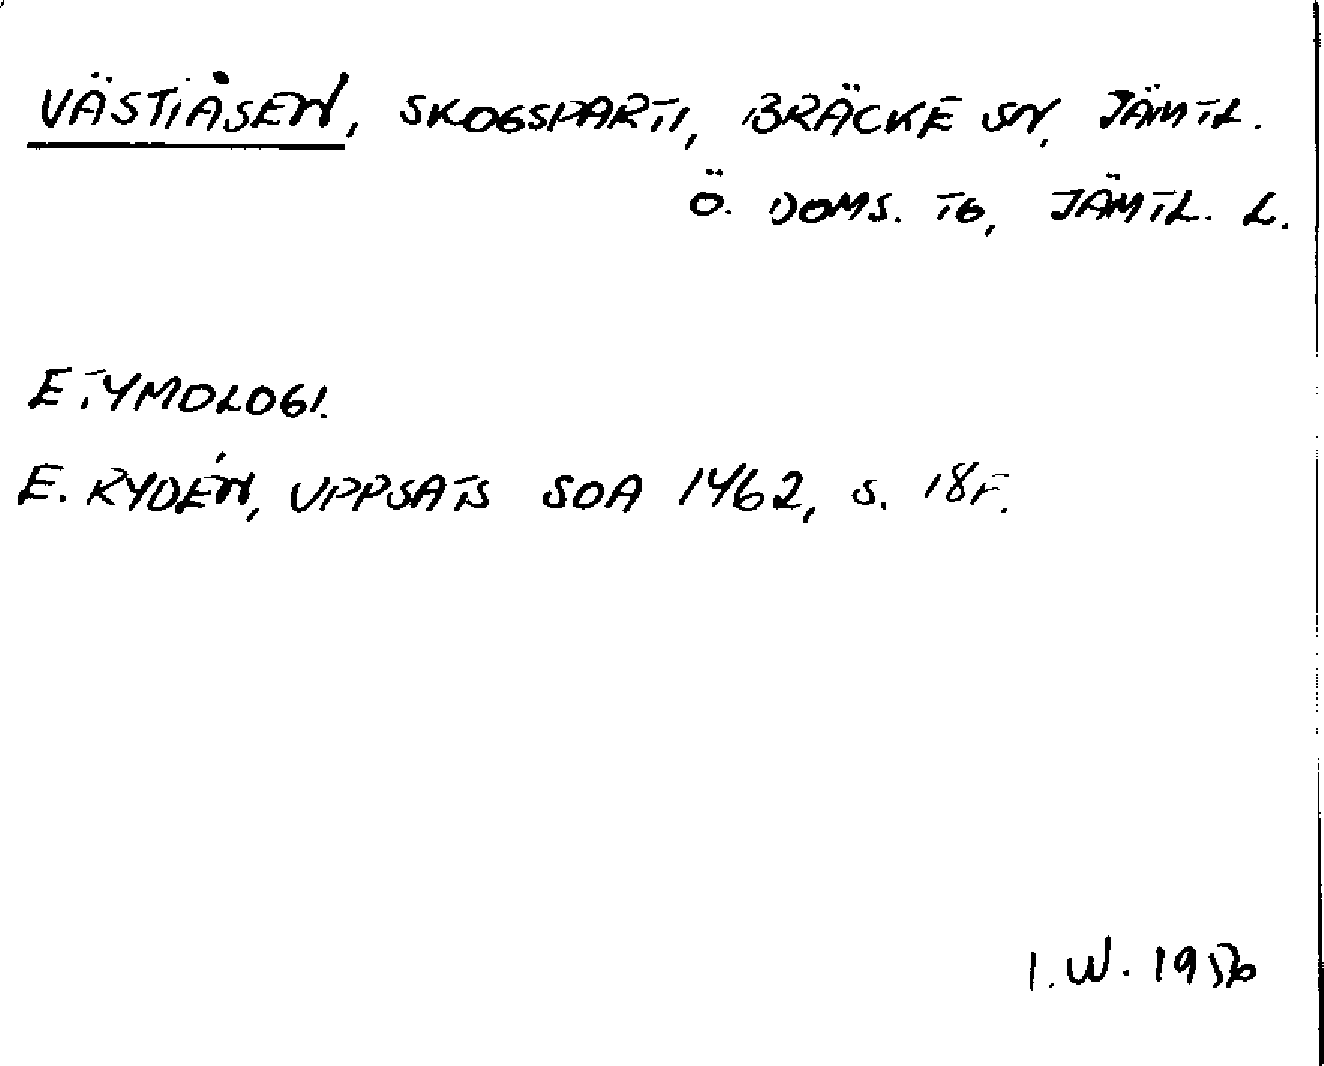 VÄSTIÅSEN, SKOGSPARTI, BRÄCKE SN, JÄMTL.
Ö. DOMS. TG, JÄMTL. L.
ETYMOLOGI.
E. RYDÉN, UPPSATS SOA 1462, S. 18F.
I.W.